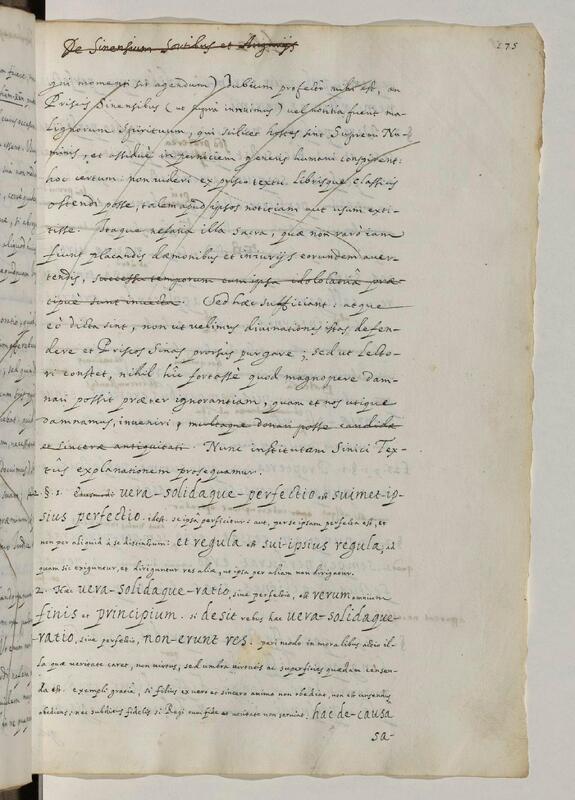 De Sinensium Sortibus et Augurijs
175
qui momenti sit agendum) Dubium profectò nihil est, an
Priscis Sinensibus (ut suprà innuimus) vel notitia fuerit ma-
lignorum Spirituum, qui scilicet hostes sint Supremi Nu-
minis, et assiduè in perniciem generis humani conspirent:
hoc certum: non videri ex prisco textu Librisque classicis
ostendi posse, talem apud ipsos notitiam aut usum exti-
tisse. Itaque nefaria illa sacra, quæ non rarò iam
fiunt placandis dæmonibus et iniurijs eorundem aver-
tendis, successu temporum cum ipsa idololatria præ-
cipuè sunt invecta. Sed hæc sufficiant: atque
eò dicta sint, non ut velimus divinationes istas defen-
dere et Priscos Sinas prorsùs purgare; sed ut Lecto-
ri constet, nihil hîc fortassè quod magnopere dam-
nari possit præter ignorantiam, quam et nos utique
damnamus, inveniri; multaque donari posse candidæ
et sinceræ antiquitati. Nunc institutam Sinici Tex-
tûs explanationem prosequamur.
§. 1. vera-solidaque-perfectio est suimet-ip-
sius perfectio. idest se ipsâ perficitur: aut, per se ipsam perfecta est, et
non per aliquid à se distinctum: et regula est sui-ipsius regula, ad
quam sic exiguntur, et diriguntur res aliæ, ut ipsa per aliam non dirigatur.
2. Hæc vera-solidaque-ratio, sive perfectio, est rerum omnium
finis et principium. si desit rebus hæc vera-solidaque-
ratio, sive perfectio, non-erunt res. pari modo in moralibus actio il-
la quæ veritate caret, non virtus, sed umbra virtutis ac superficies quædam censen-
da est. exempli gratiâ, si filius ex vero ac sincero animo non obediat, non est censendus
obediens: nec subditus fidelis si Regi cum fide ac veritate non serviat. hac de-causa
sa-